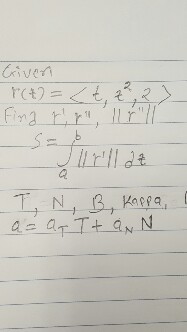 Given
r(t) = < t, t², 2 >
Find r', r'', ||r''||
S = ∫ₐᵇ ||r'|| dt
T, N, B, Kappa,
a = a_T T + a_N N